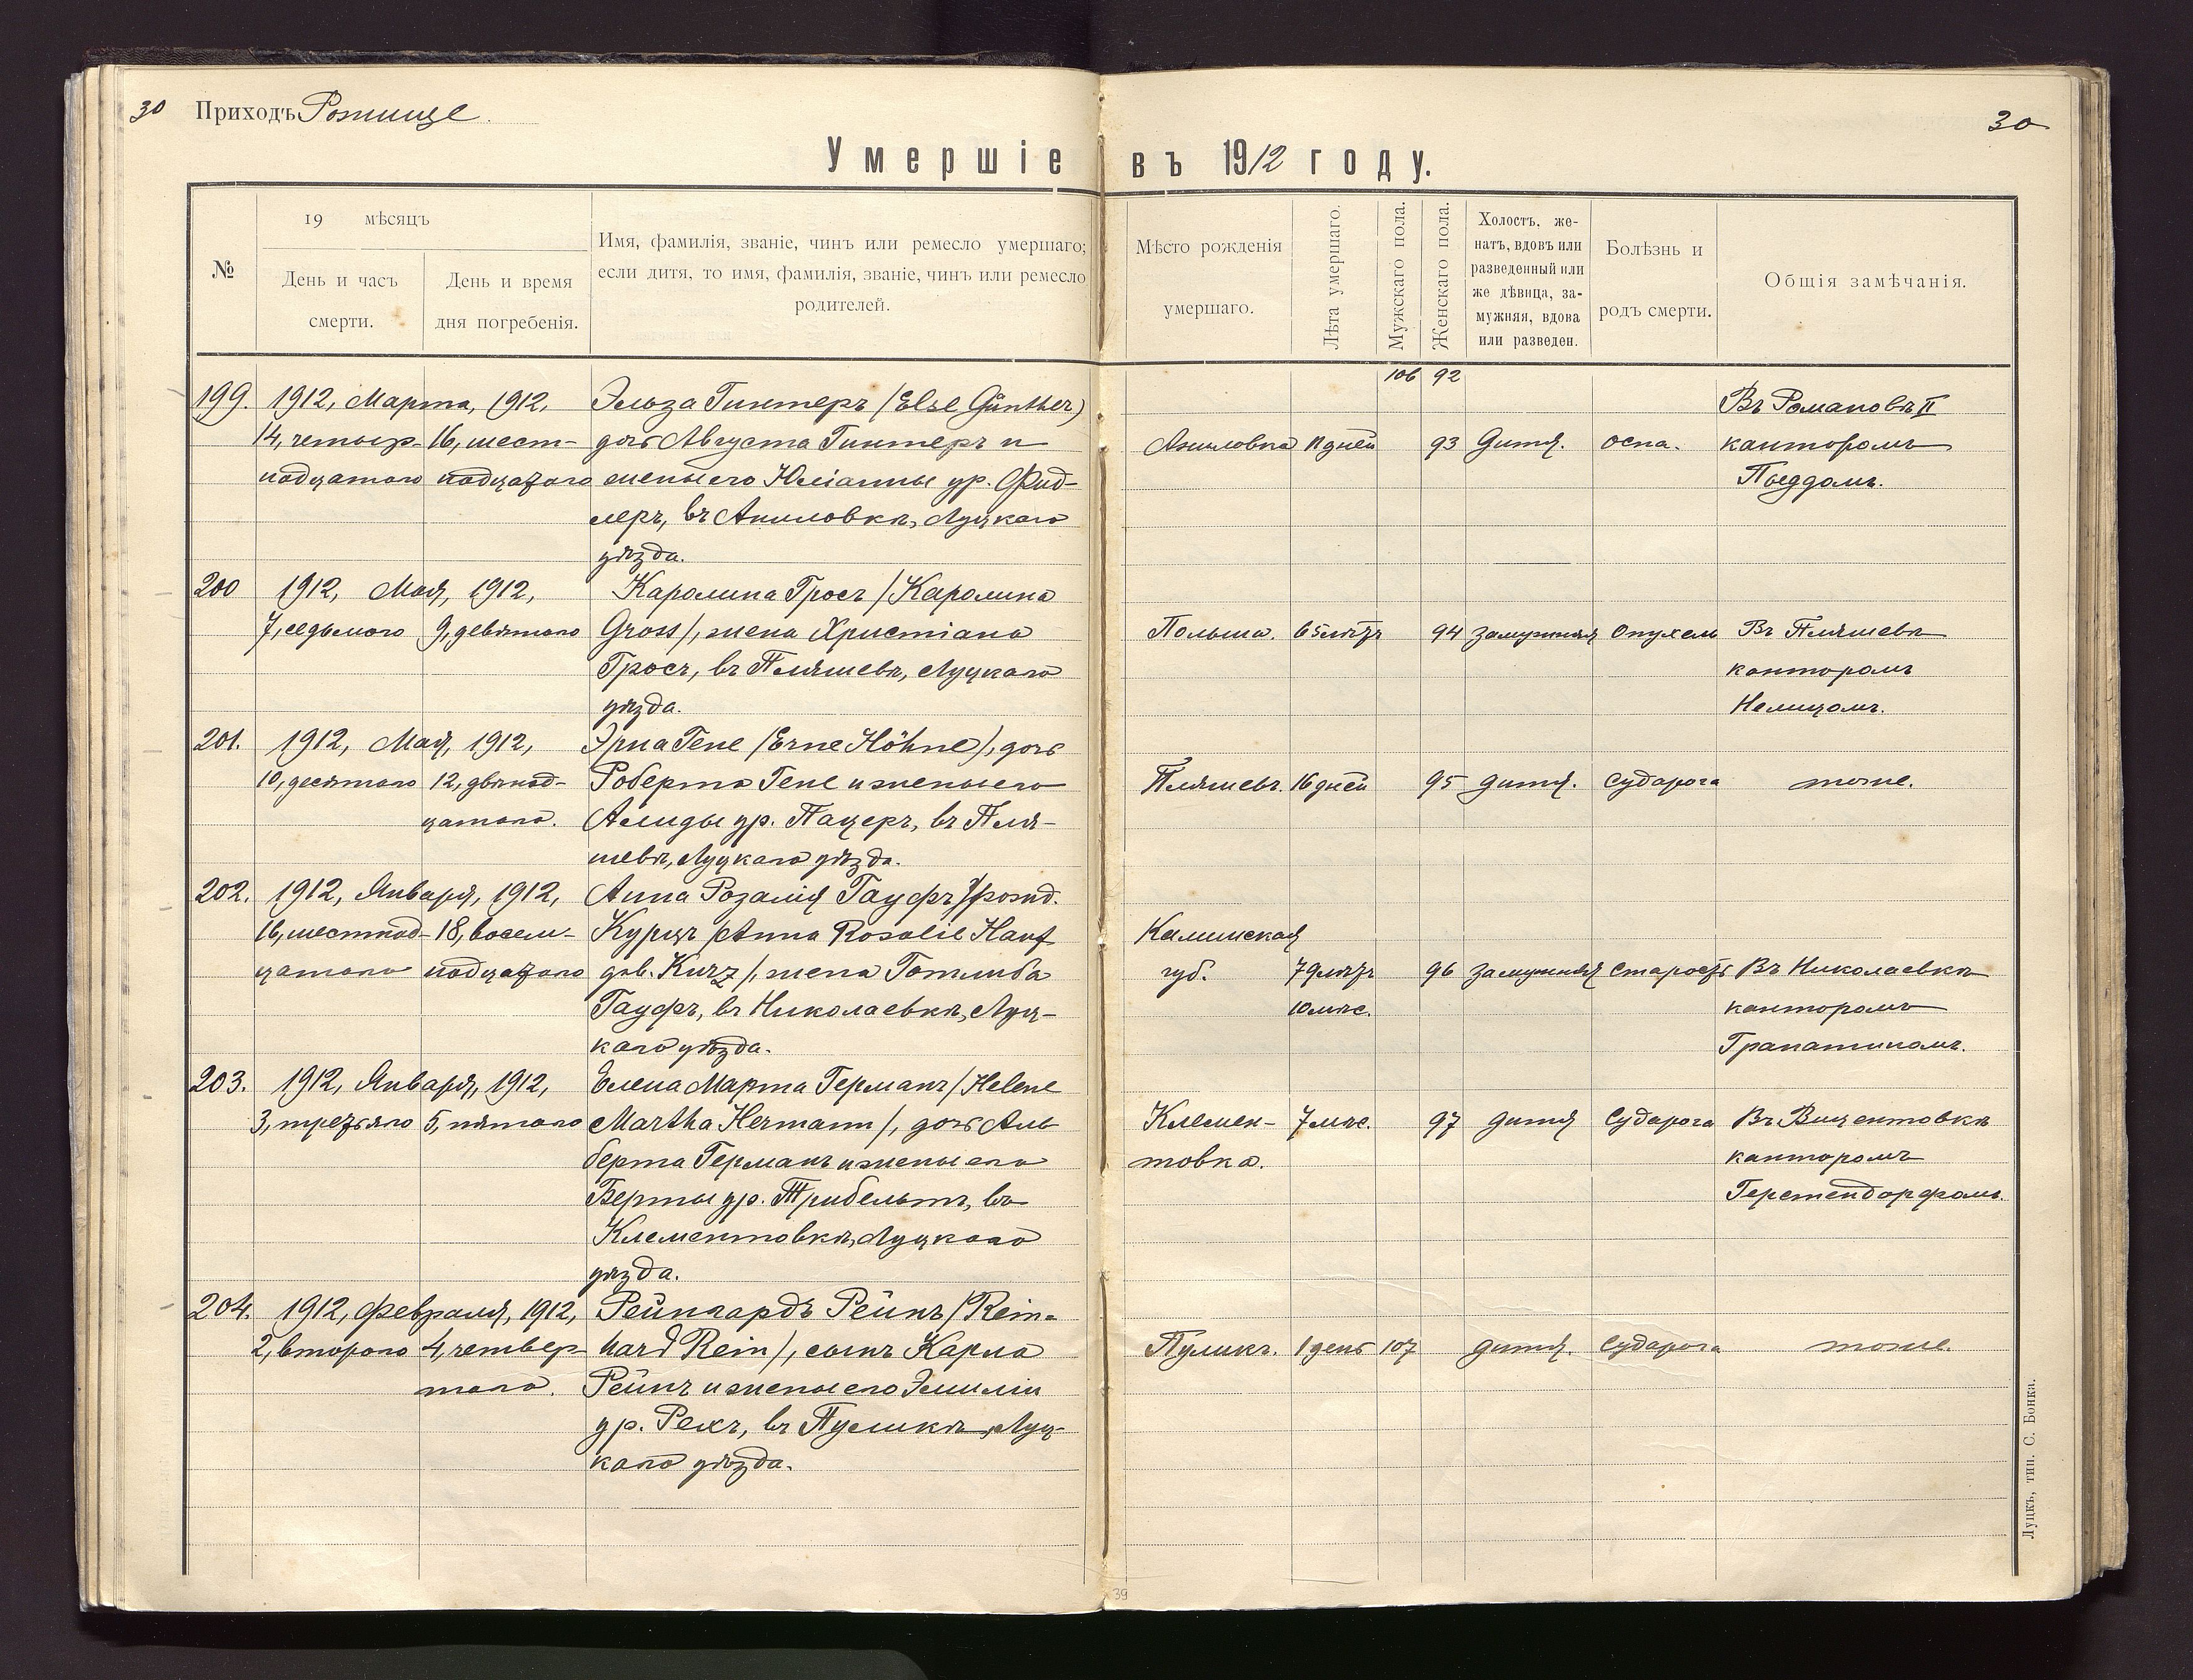 30 Приходъ Рожище.
30
Умершіе въ 1912 году.
№
19 мѣсяцъ
День и часъ смерти.
День и время дня погребенія.
Имя, фамилія, званіе, чинъ или ремесло умершаго;
если дитя, то имя, фамилія, званіе, чинъ или ремесло
родителей.
Мѣсто рожденія
умершаго.
Лѣта умершаго.
Мужскаго пола.
Женскаго пола.
Холостъ, же-
натъ, вдовъ или
разведенный или
же дѣвица, за-
мужняя, вдова
или разведен.
Болѣзнь и
родъ смерти.
Общія замѣчанія.
106 92
199. 1912, Марта, 1912, Эльза Гинтеръ (Else Günther) Въ Романовѣ II
14, четыр- 16, шест- дочь Августа Гинтеръ и 11 дней 93 дитя. оспа. канторомъ
надцатого надцатого жены его Юліанны ур. Фид-
леръ, въ Луцкаго
уѣзда.
200 1912, Мая, 1912, Каролина Гросъ /Каролина
7, седьмого 9, девятого Gross/, жена Христіана Польша. 65 лѣтъ 94 замужняя Опухоль Въ Пляшевѣ
Гросъ, въ Пляшевѣ, Луцкаго канторомъ
уѣзда. Немицомъ.
201. 1912, Мая, 1912, Эрна Гене /Erne Höhne/, дочь
10, десятого 12, двѣнад- Роберта Гене и жены его Пляшевъ. 16 дней 95 дитя. Судорога тоже.
цатого. Алиды ур. Пацеръ, въ Пля-
шевѣ, Луцкаго уѣзда.
202. 1912, Января, 1912, Анна Розалія Гауфъ рожд.
16, шестнад- 18, восем- Курцъ /Anna Rosalie Hauf Калишская
цатого надцатого geb. Kurz/, жена Готлиба губ. 79 лѣтъ 96 замужняя Старость Въ Николаевкѣ
Гауфъ, въ Николаевкѣ, Луц- 10 мѣс. канторомъ
каго уѣзда. Гранатиномъ.
203. 1912, Января, 1912, Елена Марта Германъ /Helene
3, третьяго 5, пятаго Martha Hermann/, дочь Аль Клемен- 7 мѣс. 97 дитя Судорога Въ Вицентовкѣ
берта Германъ и жены его товка. канторомъ
Берты ур. Трибельтъ, въ Герстендорфомъ.
Клементовкѣ, Луцкаго
уѣзда.
204. 1912, Февраля, 1912, Рейнгардъ Рейнъ /Rein-
2, второго 4, четвер- hard Rein/, сынъ Карла Пулика. 1 день 107 дитя. Судорога тоже.
таго. Рейнъ и жены его Эмиліи
ур. Рехъ, въ Луц-
каго уѣзда.
Луцкъ, тип. С. Бонка.
39